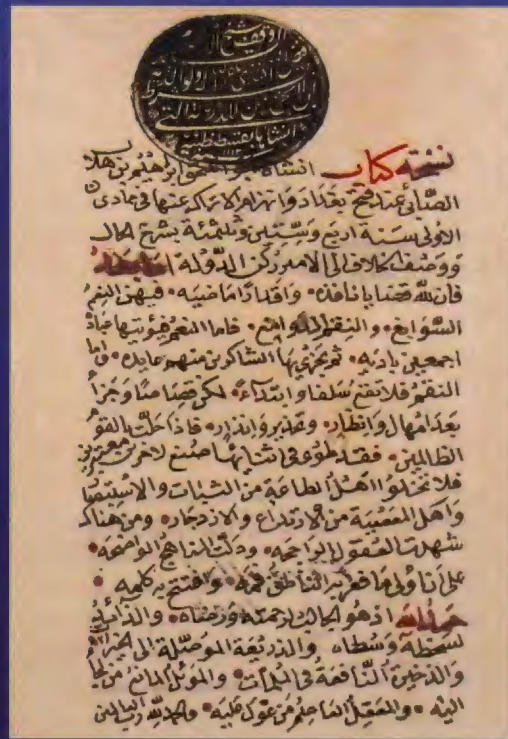 نسخة كتاب انشاه ابو اسحق ابرهيم بن هلال
الصابئ عند فتح بغداد وانهزام الاتراك عنها في جمادى
الاولى سنة اربع وستين وثلثمئة بشرح الحال
ووصف الى الامير ركن الدولة اما بعد
فان لله قضايا نافذه • واقدارا ماضيه • فيهن النعم
السوابغ • والنقم • فاما النعم عباده
اجمعين باديه • ثم يجزي بها الشاكرين منهم عايده • واما
النقم فلا تقع سلفا وابتداء • لكن قصاصا وجزاء
بعد امهال وانظار • وتحذير وانذار • فاذا حلت بالقوم
الظالمين • فقد طوى في اثنائها صنع لاخرين معتبرين
فلا تخلوا اهل الطاعة من الثبات والاستبصار
واهل المعصية من الارتداع والازدجار • ومن هناك
شهدت العقول الراجحه • ودلت المناهج الواضحه •
على ان اولى ما فغر به الناطق فمه • وافتتح به كلمه •
حمد الله اذ هو الجالب لرحمته ورضاه • والذائد
لسخطه وسطاه • والذريعة الموصلة الى الخيرات
والذخيرة النافعة في الملمات • والموئل المانع من لجأ
اليه • والمعقل العاصم من عول عليه • والحمد لله رب العالمين